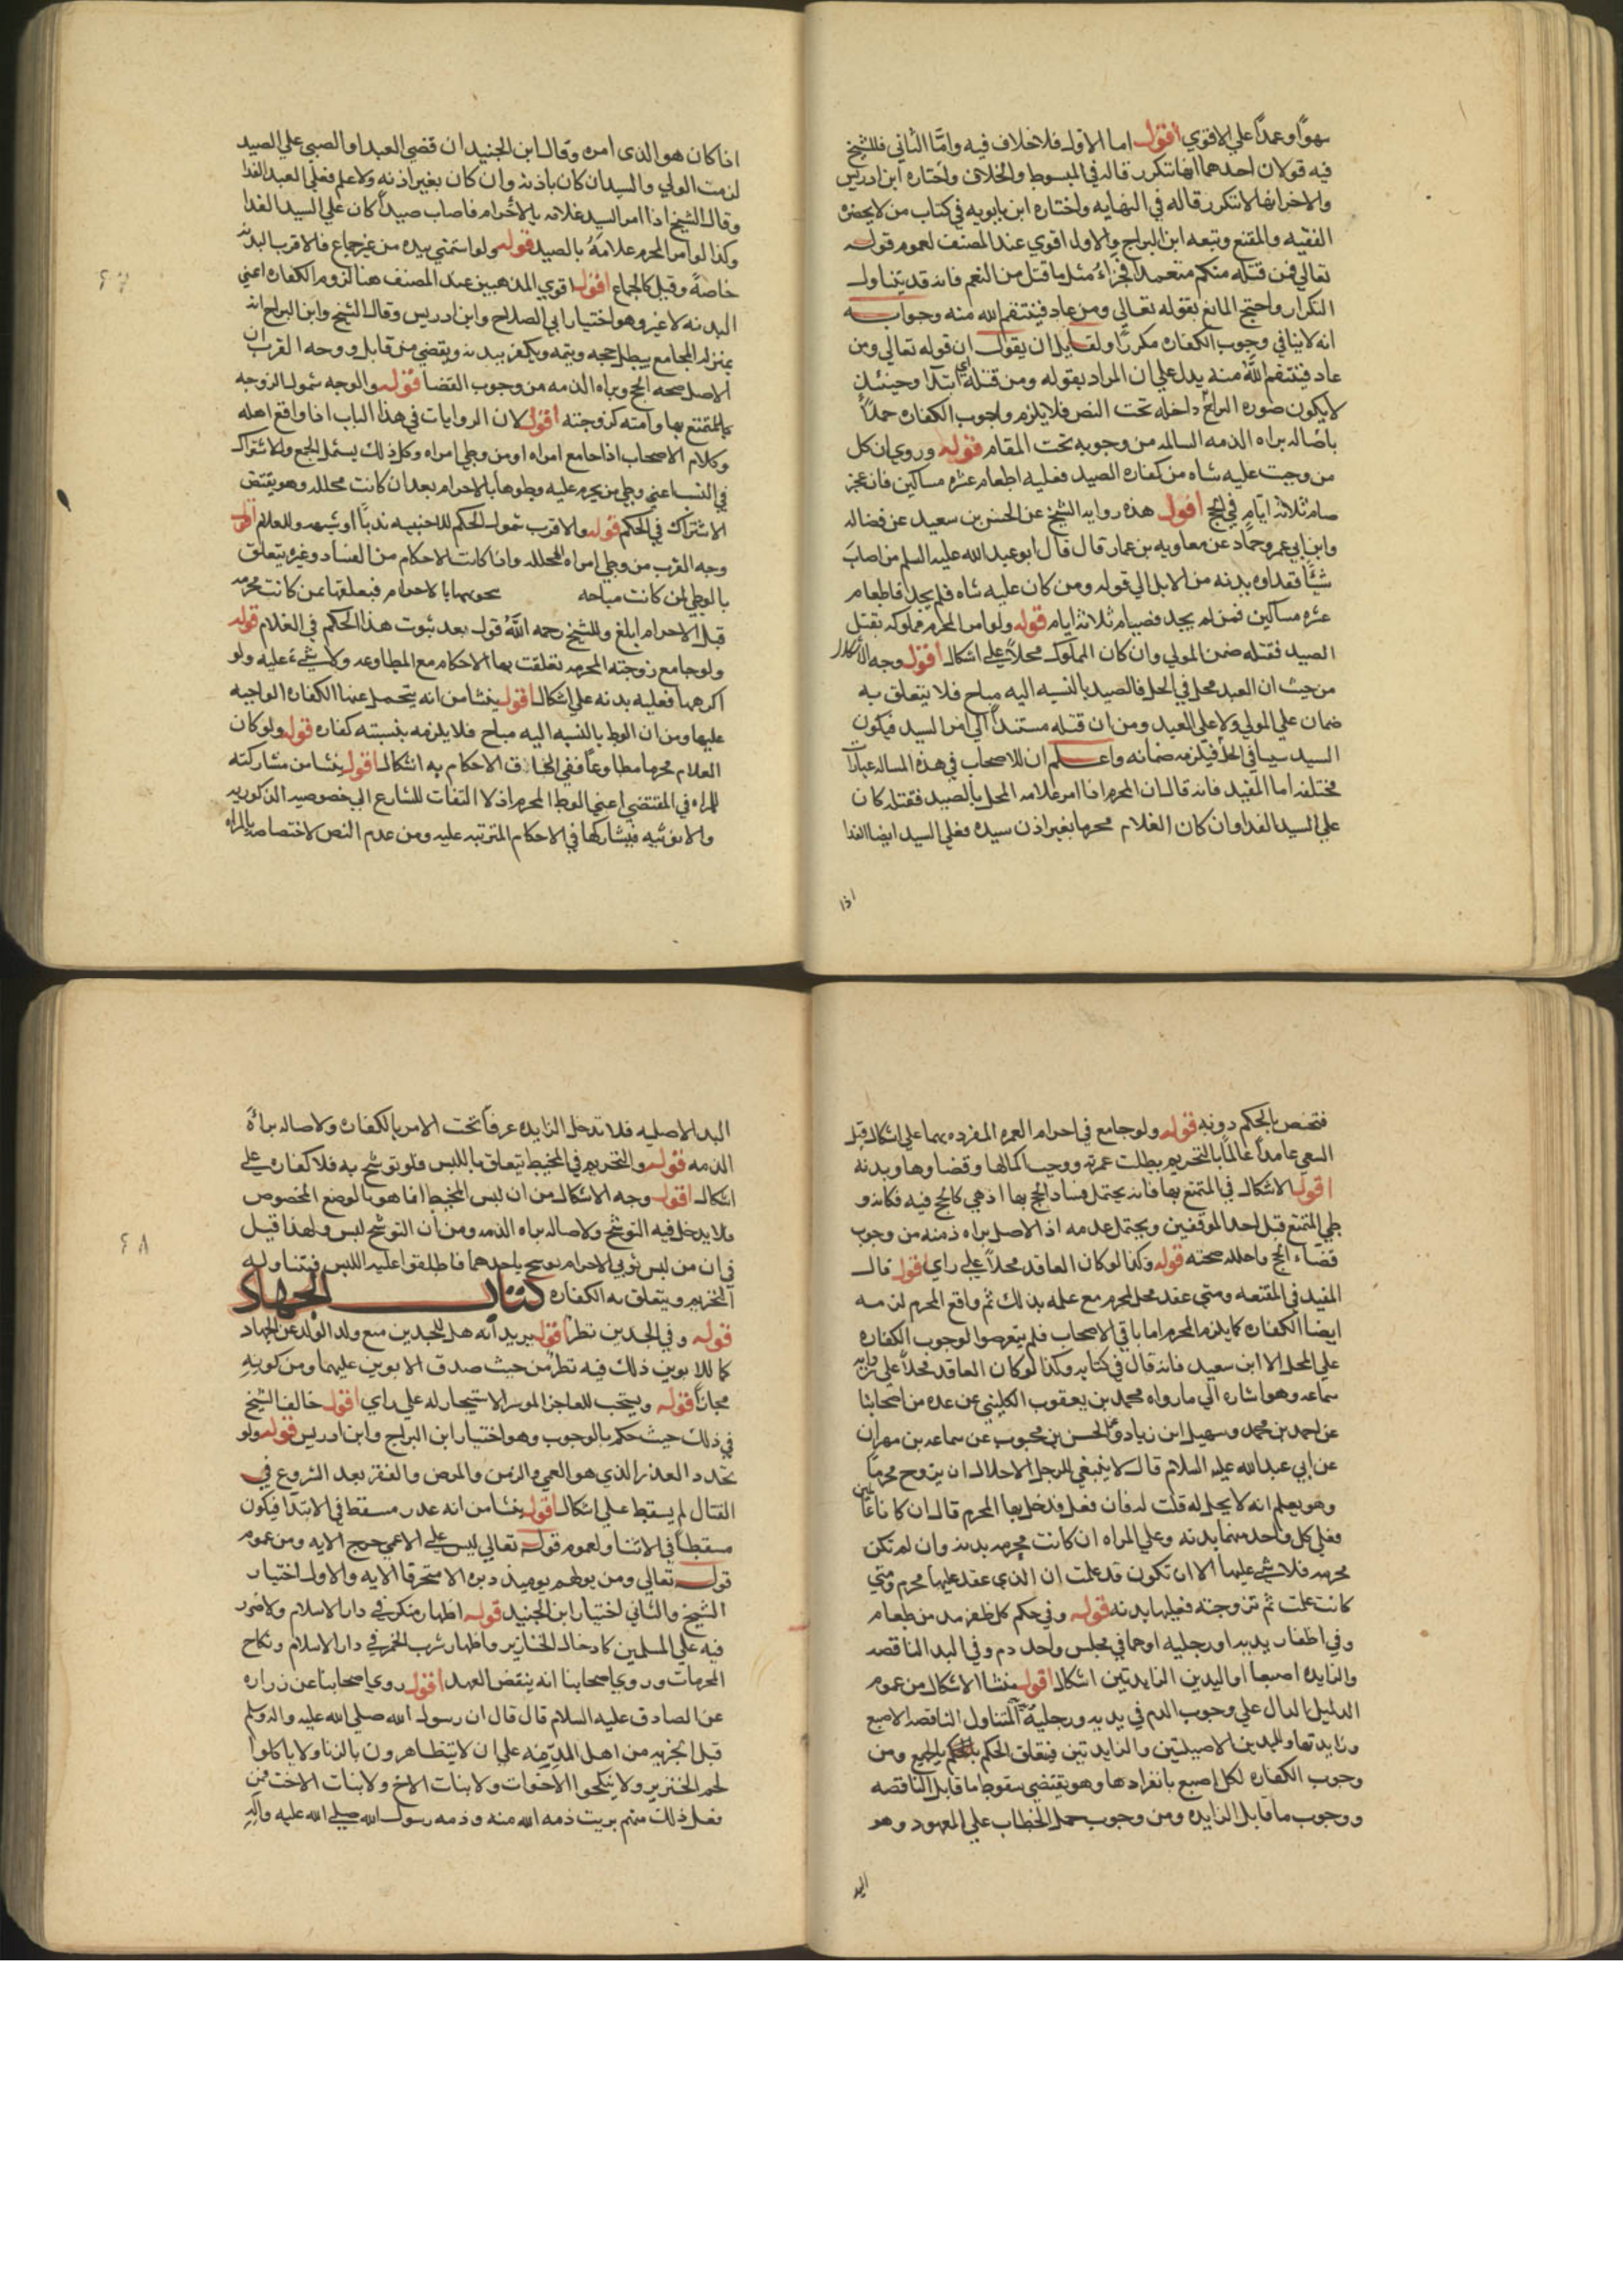 سهوًا وعمدًا علي الاقوي اقول اما الاول فلا خلاف فيه وامّا الثاني فللشيخ
فيه قولان احدهما انها تتكرر قاله في المبسوط والخلاف واختاره ابن ادريس
والاخر انها لا تتكرر قاله في النهايه واختاره ابن بابويه في كتاب من لا يحضره
الفقيه والمقنع وتبعه ابن البراج والاول اقوي عند المصنف لعموم قوله
تعالي فمن قتله منكم متعمدا فجزاء مثل ما قتل من النعم فانه قد يتناول
التكرار واحتج المانع بقوله تعالي ومن عاد فينتقم الله منه وجوابه
انه لا ينافي وجوب الكفاره مكررًا ولقايل ان يقول ان قوله تعالي ومن
عاد فينتقم الله منه يدل علي ان المراد بقوله ومن قتله اي ابتدا وحينئذ
لا يكون صوره النزاع داخله تحت النص فلا يلزم وجوب الكفاره عملاً
باصاله براه الذمه السالمه من وجوبه تحت المقام قوله وروي ان كل
من وجبت عليه شاه من كفاره الصيد فعليه اطعام عشره مساكين فان عجز
صام ثلاثة ايام في الحج اقول هذه روايه الشيخ عن الحسن بن سعيد عن فضاله
وابن ابي عمير وحماد عن معاويه بن عمار قال قال ابو عبد الله عليه السلم من اصاب
شيًا فعداوه بدنه من الابل الي قوله ومن كان عليه شاه فلم يجد فاطعام
عشره مساكين فمن لم يجد فصيام ثلاثة ايام قوله ولو امر المحرم مملوكه بقتل
الصيد فقتله ضمن المولي وان كان المملوك محلاً علي اشكال اقول وجه الاشكال
من حيث ان العبد محل في الحل فالصيد بالنسبه اليه مباح فلا يتعلق به
ضمان علي المولي ولا علي العبد ومن ان قتله مستندًا الي امر السيد فيكون
السيد سببا في الحل فيلزمه ضمانه واعلم ان للاصحاب في هذه المساله عبارات
مختلفه اما المفيد فانه قال ان المحرم اذا امر غلامه المحل بالصيد فقتله كان
علي السيد الفدا وان كان الغلام محرما بغير اذن سيده فعلي السيد ايضا الفدا
اذا
اذا كان هو الذي امره وقال ابن الجنيد ان قضي العبد او الصبي علي الصيد
لزمت الولي والسيد ان كان باذنه وان كان بغير اذنه ولا علم فعلي العبد الفدا
وقال الشيخ اذا امر السيد غلامه بالاحرام فاصاب صيدًا كان علي السيد الفدا
وكذا لو امر المحرم غلامه بالصيد قوله ولو استمني بيده من غير جماع فالاقرب البدنه
خاصة وقيل كالجماع اقول اقوي المذهبين عند المصنف هنا لزوم الكفاره اعني
البدنه لا غير وهو اختيار ابي الصلاح وابن ادريس وقال الشيخ وابن البراج انه
بمنزله المجامع يبطل حجه ويتمه ويكفر ببدنه ويقضي من قابل ووجه القرب ان
الاصل صحه الحج وبراه الذمه من وجوب القضا قوله والوجه شمول الزوجه
للمتمتع بها وامته كزوجته اقول لان الروايات في هذا الباب اذا واقع اهله
وكلام الاصحاب اذا جامع امراه او من وطي امراه وكل ذلك يشمل الجميع والاشتراك
في النسا عني وطي من يحرم عليه وطوها بالاحرام بعد ان كانت محلله وهو يقتضي
الاشتراك في الحكم قوله والاقرب شمول الحكم للاجنبيه ندبًا او شبهه وللغلام اقول
وجه القرب من وطي امراه المحلله واذا كانت الاحكام من الفساد وغيره يتعلق
بالوطي لمن كانت مباحه بالاحرام فبعلقها بمن كانت محرمه
قبل الاحرام ابلغ وللشيخ رحمه الله قول بعد ثبوت هذا الحكم في الغلام قوله
ولو جامع زوجته المحرمه تعلقت بها الاحكام مع المطاوعه ولا شيء عليه ولو
اكرهها فعليه بدنه علي اشكال اقول ينشا من انه يتحمل عنها الكفاره الواجبه
عليها ومن ان الوطي بالنسبه اليه مباح فلا يلزمه بنسبته كفاره قوله ولو كان
الغلام محرما مطاوعًا ففي الحاق الاحكام به اشكال اقول ينشا من مشاركته
للمراه في المقتضي اعني الوطي المحرم اذ لا التفات للشارع الي خصوصيه الذكوريه
والانوثيه فيشاركها في الاحكام المترتبه عليه ومن عدم النص لاختصاصه بالمراه
٤٧
فتختص بالحكم دونه قوله ولو جامع في احرام العمره المفرده بها علي اشكال قبل
السعي عامدًا عالمًا بالتحريم بطلت عمرته ووجب اكمالها وقضاوها وبدنه
اقول الاشكال في المتمتع بها فانه يحتمل فساد الحج بها اذ هي كالحج فيه فكانه و
طي المتمتع قبل احد الموقفين ويحتمل عدمه اذ الاصل براه ذمته من وجوب
قضاء الحج واصله صحته قوله وكذا لو كان العاقد محلاً علي راي اقول قال
المفيد في المقنعه ومتي عقد محل لمحرم مع علمه بذلك ثم واقع المحرم لزمه
ايضا الكفاره كما يلزم المحرم اما باقي الاصحاب فلم يتعرضوا لوجوب الكفاره
علي المحل الا ابن سعيد فانه قال في كتابه وكذا لو كان العاقد محلاً علي روايه
سماعه وهو اشاره الي ما رواه محمد بن يعقوب الكليني عن عده من اصحابنا
عن احمد بن محمد وسهيل ابن زياد عن الحسن بن محبوب عن سماعه بن مهران
عن ابي عبد الله عليه السلام قال لا ينبغي للرجل الاحلال ان يزوج محرمًا
وهو يعلم انه لا يحل له قلت له فان فعل فدخل بها المحرم قال ان كانا عالمين
فعلي كل واحد منهما بدنه وعلي المراه ان كانت محرمه بدنه وان لم تكن
محرمه فلا شي عليها الا ان تكون قد علمت ان الذي عقد عليها محرم ومتي
كانت علمت ثم تزوجته فعليها بدنه قوله وفي حكم كل ظفر مد من طعام
وفي اظفار يديه او رجليه او هما في مجلس واحد دم وفي اليد الناقصه
والزايده اصبعا او اليدين الزايدتين اشكال اقول منشا الاشكال من عموم
الدليل الدال علي وجوب الدم في يديه ورجليه المتناول الناقصه الاصبع
وزايدتها ولليدين الاصليتين والزايدتين فيتعلق الحكم بالجميع ومن
وجوب الكفاره لكل اصبع بانفرادها وهو يقتضي سقوط ما قابل الناقصه
ووجوب ما قابل الزايده ومن وجوب حمل الخطاب علي المعهود وهو
اليد
اليد الاصليه فلا تدخل الزايده عرفًا تحت الامر بالكفاره ولاصاله براة
الذمه قوله والتحريم في المخيط يتعلق باللبس فلو توشح به فلا كفاره علي
اشكال اقول وجه الاشكال من ان لبس المخيط انما هو بالوضع المخصوص
فلا يدخل فيه التوشح ولاصاله براه الذمه ومن ان التوشح لبس ولهذا قيل
في ان من لبس ثوبي الاحرام يوشح باحدهما فاطلقوا عليه اللبس فيتناوله
التحريم ويتعلق به الكفاره كتاب الجهاد
قوله وفي الجدين نظر اقول يريد انه هل للجدين منع ولد الولد عن الجهاد
كما للابوين ذلك فيه نظر من حيث صدق الابوين عليهما ومن كونه
مجازًا قوله ويستحب للعاجز الموسر الاستيجار له علي راي اقول خالف الشيخ
في ذلك حيث حكم بالوجوب وهو اختيار ابن البراج وابن ادريس قوله ولو
تجدد العذر الذي هو العمي والزمن والمرض والفقر بعد الشروع في
القتال لم يسقط علي اشكال اقول ينشا من انه عذر مسقط في الابتدا فيكون
مسقطًا في الاثنا ولعموم قوله تعالي ليس علي الاعمي حرج الايه ومن عموم
قوله تعالي ومن يولهم يوميذ دبره الا متحرفا الايه والاول اختيار
الشيخ والثاني اختيار ابن الجنيد قوله اظهار منكر في دار الاسلام ولا ضرر
فيه علي المسلمين كادخال الخنازير واظهار شرب الخمر في دار الاسلام ونكاح
المحرمات وروي اصحابنا انه ينقض العهد اقول روي اصحابنا عن زراره
عن الصادق عليه السلام قال قال ان رسول الله صلي الله عليه واله وسلم
قبل الجزيه من اهل الذمه علي ان لا يتظاهرون بالزنا ولا ياكلوا
لحم الخنزير ولا ينكحوا الاخوات ولا بنات الاخ ولا بنات الاخت فمن
فعل ذلك منهم بريت ذمه الله منه وذمه رسول الله صلي الله عليه وآله
٤٨